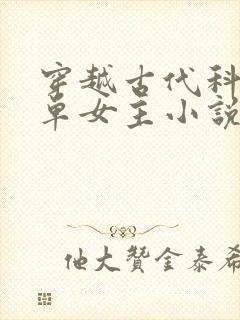 穿越古代科
单女主小說
他大贊金泰希